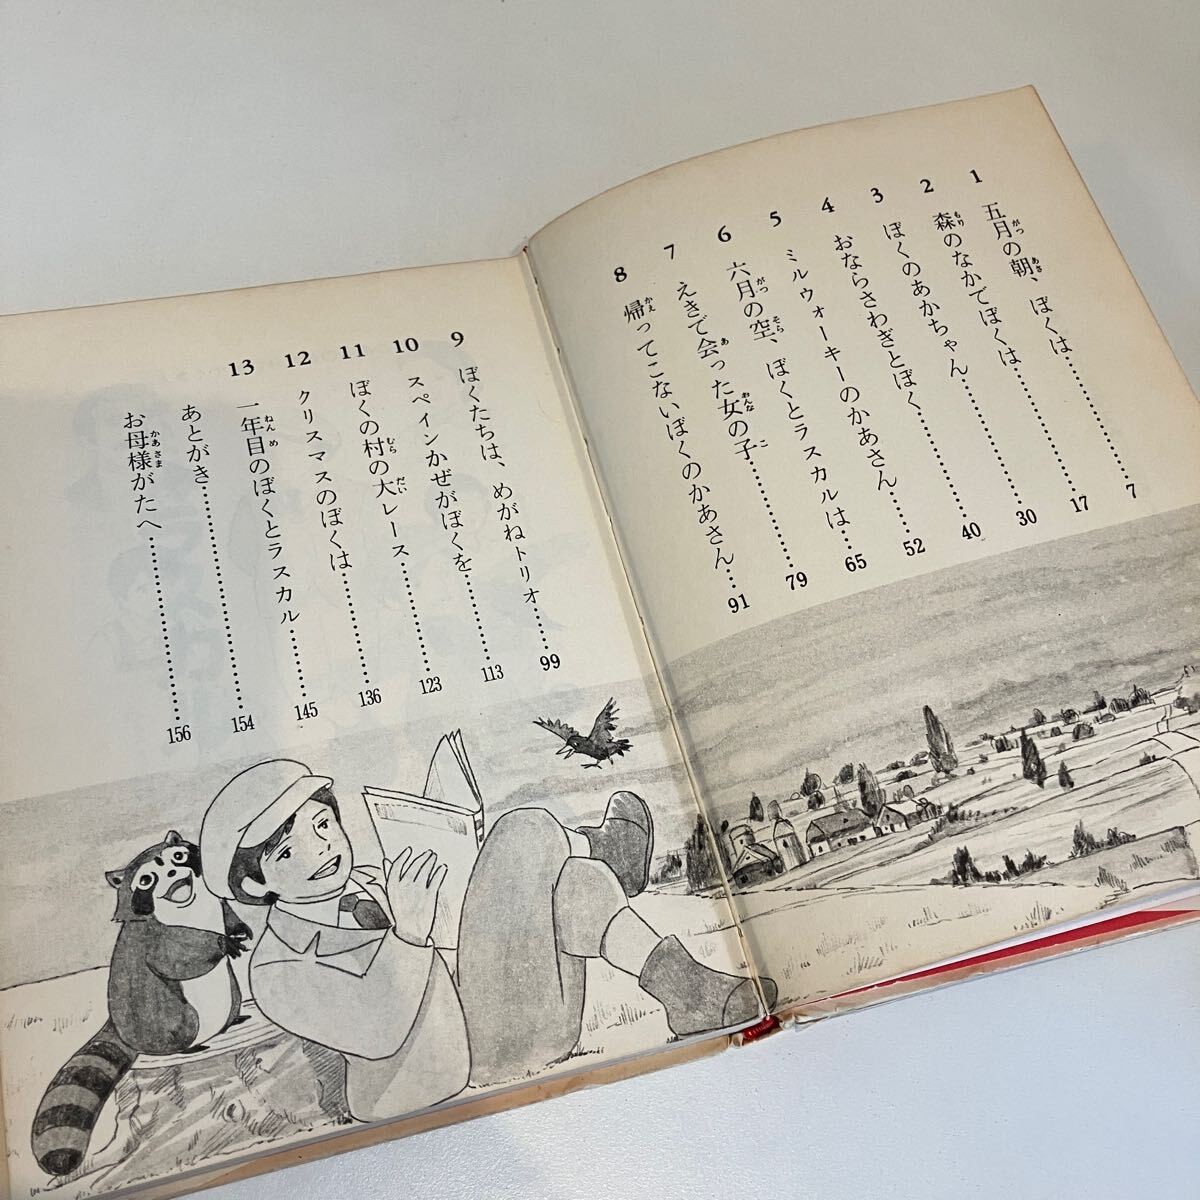 1 五月の朝、ぼくは……………7
2 森のなかでぼくは……………17
3 ぼくのあかちゃん……………30
4 おならさわぎとぼく……………40
5 ミルウォーキーのかあさん……………52
6 六月の空、ぼくとラスカルは……………65
7 えきで会った女の子……………79
8 帰ってこないぼくのかあさん……………91
9 ぼくたちは、めがねトリオ……………99
10 スペインかぜがぼくを……………113
11 ぼくの村の大レース……………123
12 クリスマスのぼくは……………136
13 一年目のぼくとラスカル……………145
あとがき……………154
お母様がたへ……………156